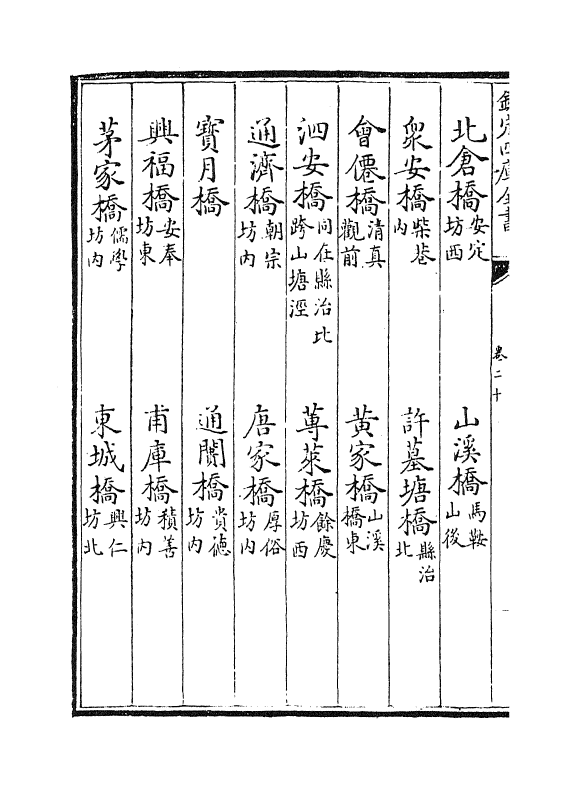 欽定四庫全書
卷二十
北倉橋安定坊西 山溪橋馬鞍山後
衆安橋柴巷内 許墓塘橋縣治北
會僊橋清真觀前 黄家橋山溪橋東
泗安橋同在縣治北跨山塘涇 蓴萊橋餘慶坊西
通濟橋朝宗坊内 唐家橋厚俗坊内
寳月橋 通闤橋貴德坊内
興福橋安奉坊東 甫庫橋積善坊内
茅家橋儒學坊内 東城橋興仁坊北